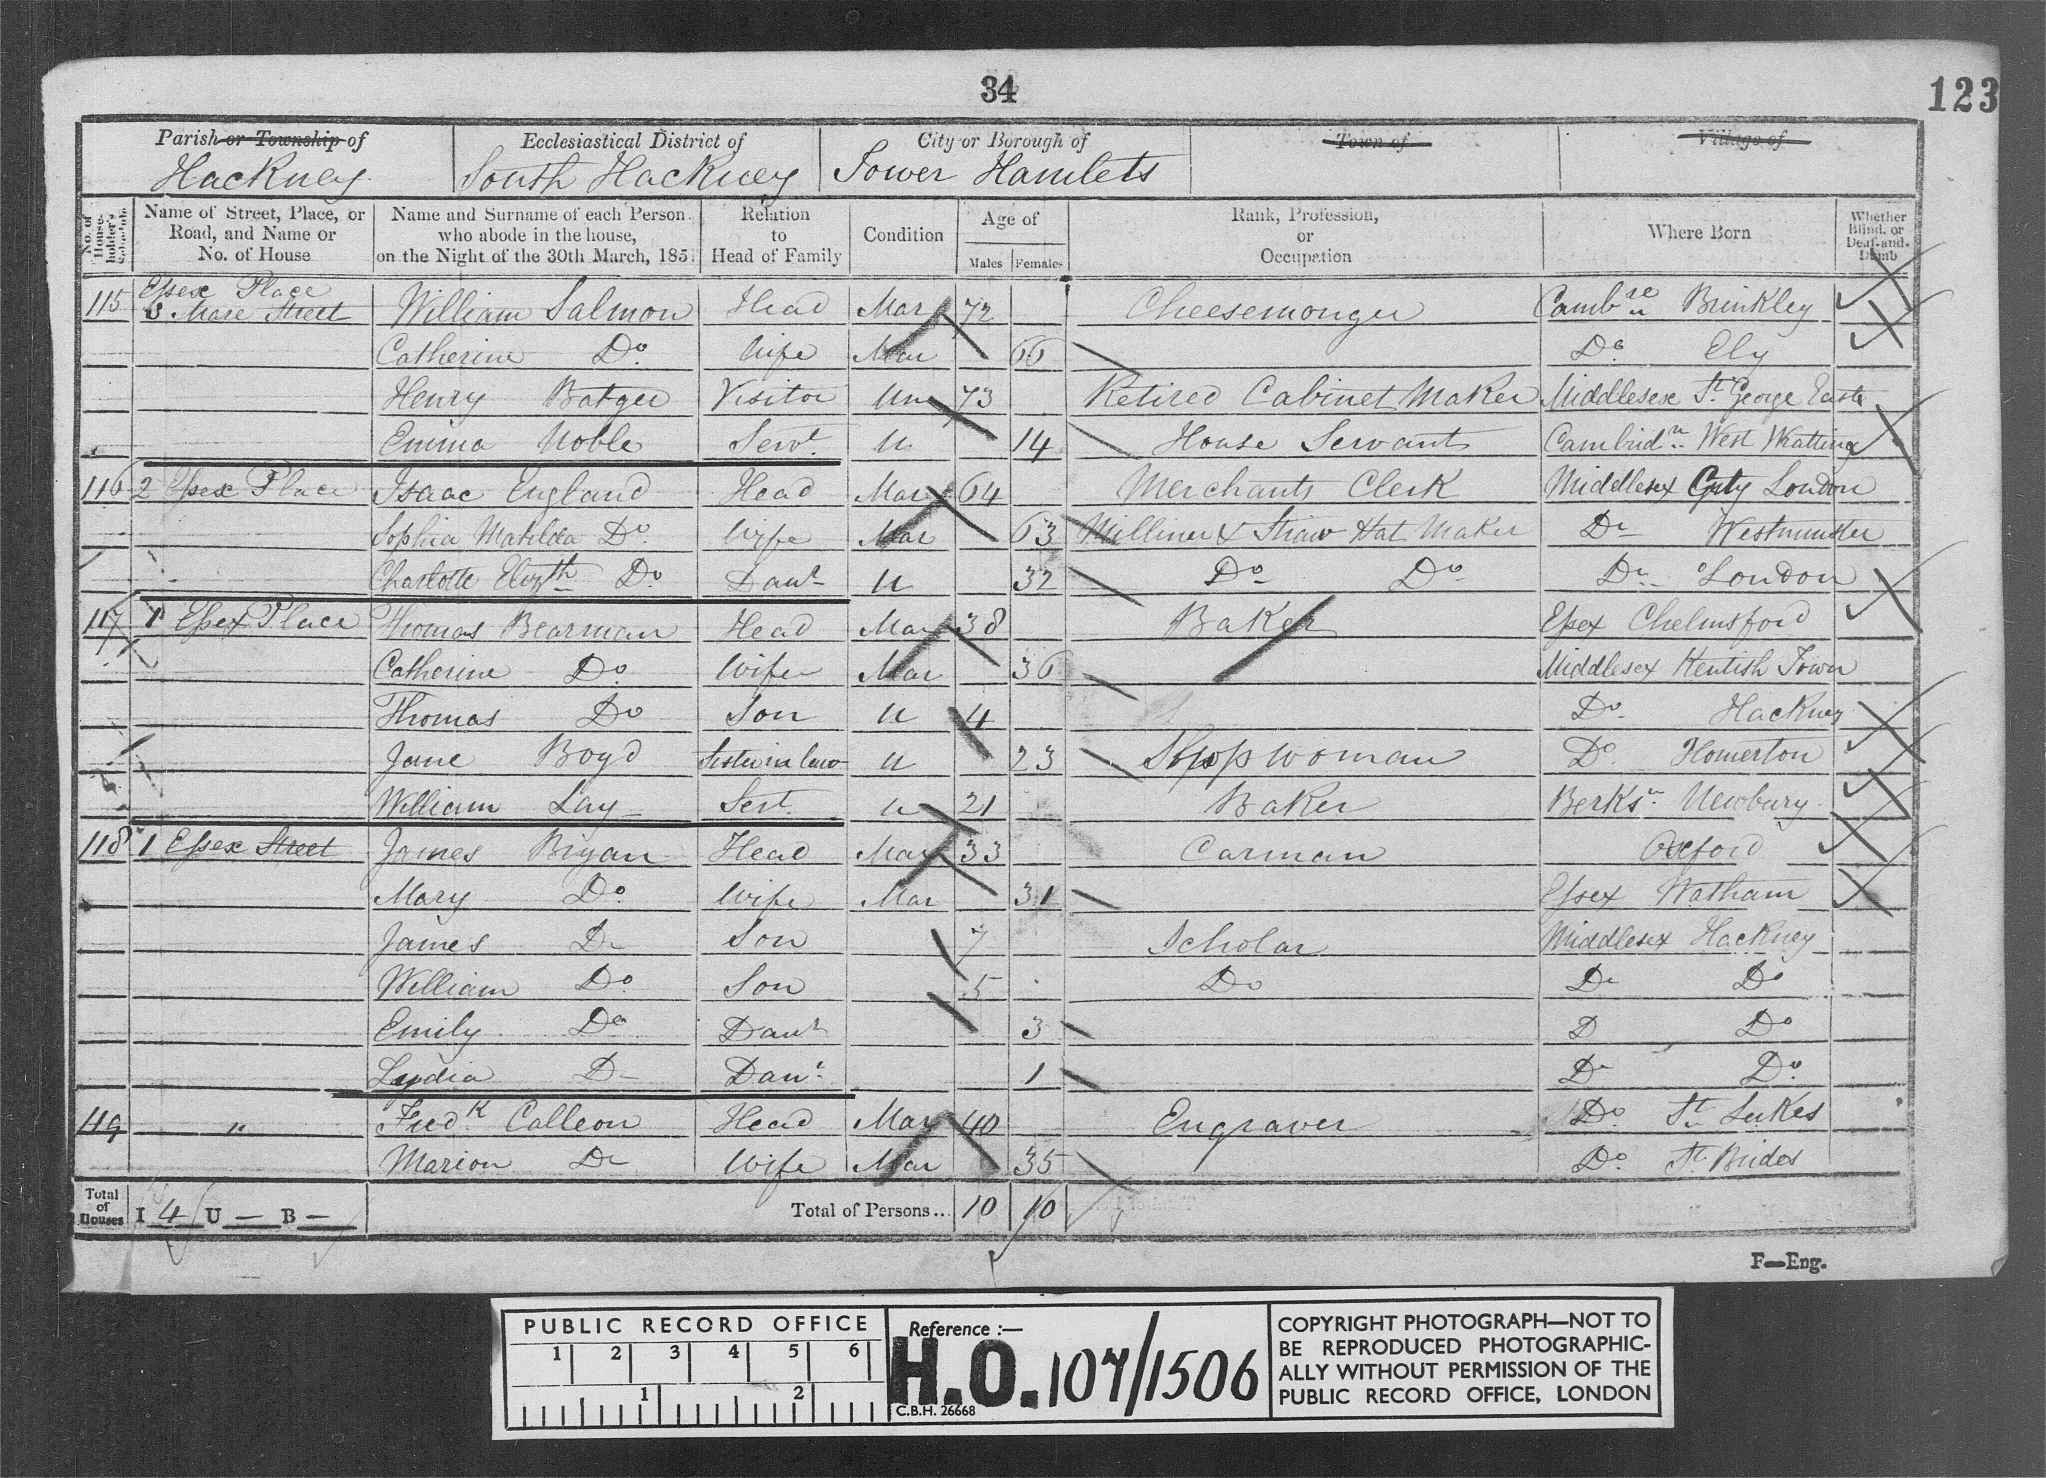 34
123
Parish or Township of
Hackney
Ecclesiastical District of
South Hackney
City or Borough of
Tower Hamlets
Town of
Village of
No. of House-holder's Schedule
Name of Street, Place, or Road, and Name or No. of House
Name and Surname of each Person who abode in the house, on the Night of the 30th March, 1851
Relation to Head of Family
Condition
Age of
Males Females
Rank, Profession, or Occupation
Where Born
Whether Blind, or Deaf-and-Dumb
Essex Place
115 3 Mare Street William Salmon Head Mar 72 Cheesemonger Camb re Brinkley
Catherine Do Wife Mar 66 Do Ely
Henry Batger Visitor Un 73 Retired Cabinet Maker Middlesex St George East
Emma Noble Servt U 14 House Servant Cambrid West Wratting
116 2 Essex Place Isaac England Head Mar 64 Merchants Clerk Middlesex City London
Sophia Matilda Do Wife Mar 63 Milliner & Straw Hat Maker Do Westminster
Charlotte Elizth Do Daur U 32 Do Do Do London
117 1 Essex Place Thomas Bearman Head Mar 38 Baker Essex Chelmsford
Catherine Do Wife Mar 36 Middlesex Kentish Town
Thomas Do Son U 4 Do Hackney
Jane Boyd Sister in law U 23 Shopwoman Do Homerton
William Lay Sert U 21 Baker Berks Newbury
118 1 Essex Street James Bryan Head Mar 33 Carman Oxford
Mary Do Wife Mar 31 Essex Watham
James Do Son 7 Scholar Middlesex Hackney
William Do Son 5 Do Do Do
Emily Do Daur 3 D Do
Lydia D Daur 1 Do Do
119 " Fredk Calleon Head Mar 40 Engraver Do St Lukes
Marion Do Wife Mar 35 Do St Brides
Total of Houses I 4 U — B —
Total of Persons... 10 10
F—Eng.
PUBLIC RECORD OFFICE
1 2 3 4 5 6
1 2
Reference :—
H.O. 107/1506
C.B.H. 26668
COPYRIGHT PHOTOGRAPH—NOT TO
BE REPRODUCED PHOTOGRAPHIC-
ALLY WITHOUT PERMISSION OF THE
PUBLIC RECORD OFFICE, LONDON